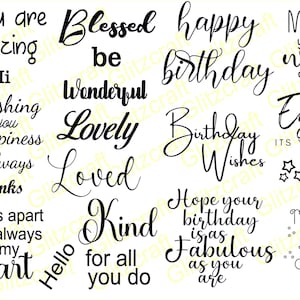 u are
zing
Hi
shing
you
piness
lways
nks
s apart
always
my
art
Hello
Blessed
be
Wonderful
Lovely
Loved
Kind
for all
you do
happy
birthday
Birthday
Wishes
Hope your
birthday
is as
Fabulous
as you
are
ITS